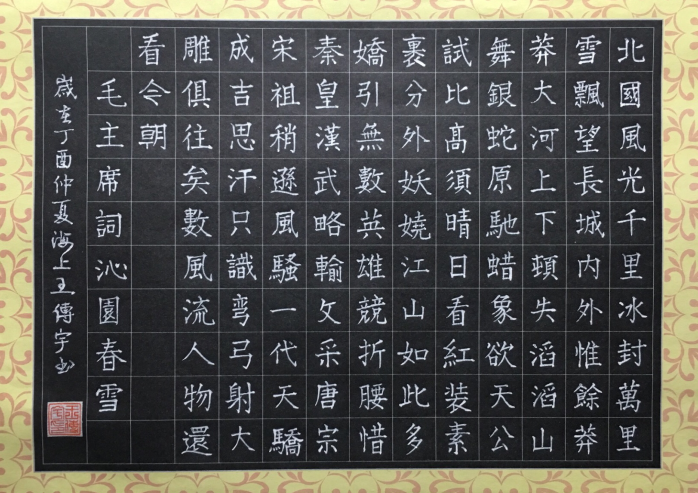 北國風光千里冰封萬里
雪飄望長城内外惟餘莽
莽大河上下頓失滔滔山
舞銀蛇原馳蜡象欲天公
試比高須晴日看紅装素
裹分外妖嬈江山如此多
嬌引無數英雄競折腰惜
秦皇漢武略輸文采唐宗
宋祖稍遜風騷一代天驕
成吉思汗只識弯弓射大
雕俱往矣數風流人物還
看今朝
毛主席詞沁園春雪
歲在丁酉仲夏海上王傳宇书